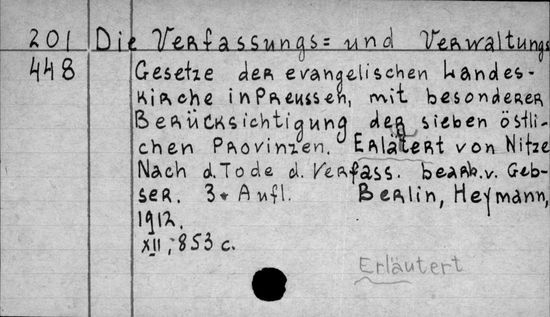 201 Die Verfassungs= und Verwaltungs
448 Gesetze der evangelischen Landes-
kirche in Preussen, mit besonderer
Berücksichtigung der sieben östli-
chen Provinzen. Erlätert von Nitze
Nach d. Tode d. Verfass. bearb. v. Geb-
ser. 3. Aufl. Berlin, Heymann,
1912.
XII, 853 c.
Erläutert